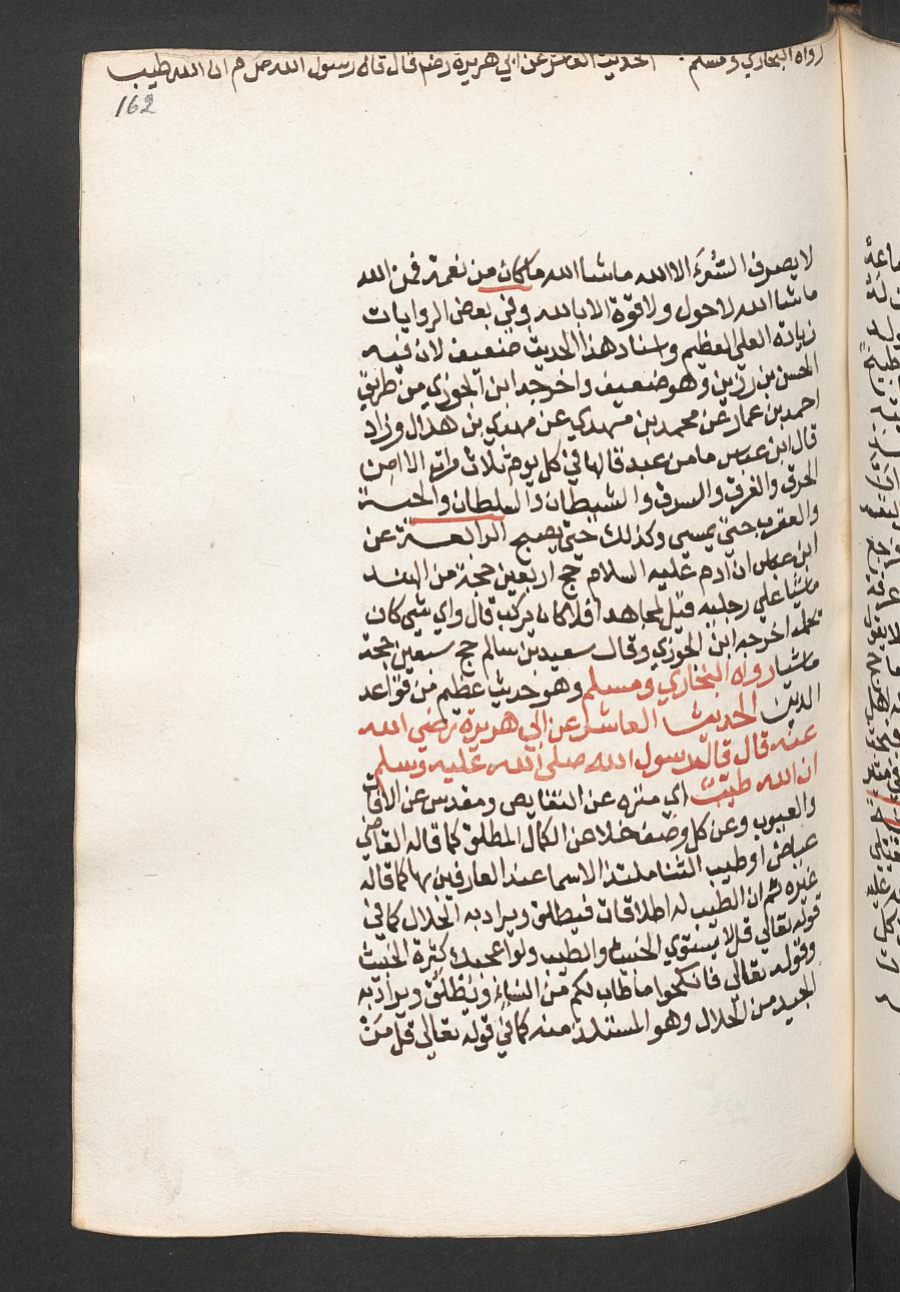 رواه البخاري ومسلم الحديث العاشر عن ابي هريرة رضه قال قال رسول الله صلعم ان الله طيب
162
لا يصرف السوء الا الله ماشا الله ما كان من نعمة فمن الله
ماشا الله لا حول ولا قوة الا بالله وفي بعض الروايات
زيادة العلي العظيم واسناد هذا الحديث ضعيف لان فيه
الحسن بن رزين وهو ضعيف واخرجه ابن الجوزي من طريق
احمد بن عمار عن محمد بن مهدي عن مهدي بن هلال وزاد
قال ابن عباس ما من عبد قالها في كل يوم ثلاث مرات الا امن
الحرق والغرق والسرق والشيطان والسلطان والحية
والعقرب حتى يمسي وكذلك حتى يصبح الرابعة عن
ابن عباس ان ادم عليه السلام حج اربعين حجة من الهند
ماشيا على رجليه قيل لمجاهد افلا كان يركب قال واي شي كان
يحمله اخرجه ابن الجوزي وقال سعيد بن سالم حج سبعين حجة
ماشيا رواه البخاري ومسلم وهو حديث عظيم من قواعد
الدين الحديث العاشر عن ابي هريرة رضي الله
عنه قال قال رسول الله صلى الله عليه وسلم
ان الله طيب اي منزه عن النقايص ومقدس عن الافات
والعيوب وعن كل وصف خلا عن الكمال المطلق كما قاله القاضي
عياض او طيب الثنا ملتذ الاسما عند العارفين بها كما قاله
غيره ثم ان الطيب له اطلاقات فيطلق ويراد به الحلال كما في
قوله تعالى قل لا يستوي الخبيث والطيب ولو اعجبك كثرة الخبيث
وقوله تعالى فانكحوا ما طاب لكم من النساء ويطلق ويراد به
الجيد من الحلال وهو المستلذ منه كما في قوله تعالى قل من